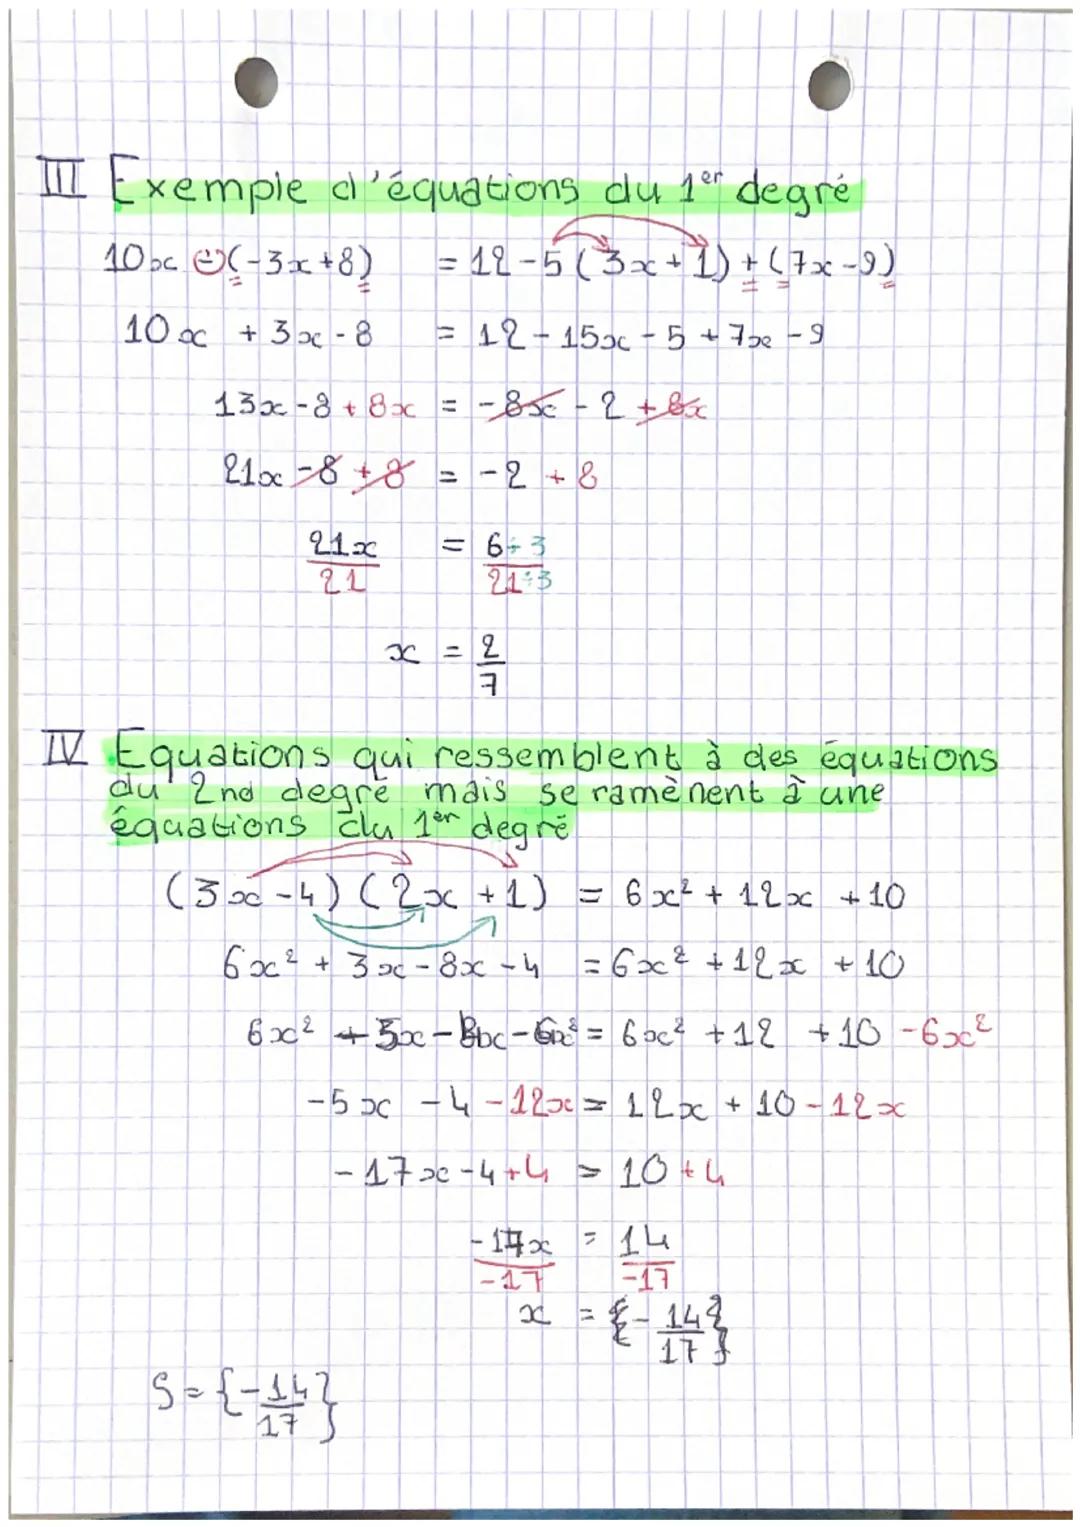 III Exemple d'équations du 1er degré
10x -(-3x+8) = 12-5(3x+1)+(7x-9)
10x +3x-8 = 12-15x-5+7x-9
13x-8+8x = -8x-2+8x
21x-8+8 = -2+8
21x/21 = 6÷3/21÷3
x = 2/7
IV Equations qui ressemblent à des équations
du 2nd degré mais se ramènent à une
équations du 1er degré
(3x-4)(2x+1) = 6x²+12x+10
6x²+3x-8x-4 = 6x²+12x+10
6x²+3x-8x-6x² = 6x²+12+10-6x²
-5x-4-12x = 12x+10-12x
-17x-4+4 = 10+4
-17x/-17 = 14/-17
x = {-14/17}
S={-14/17}